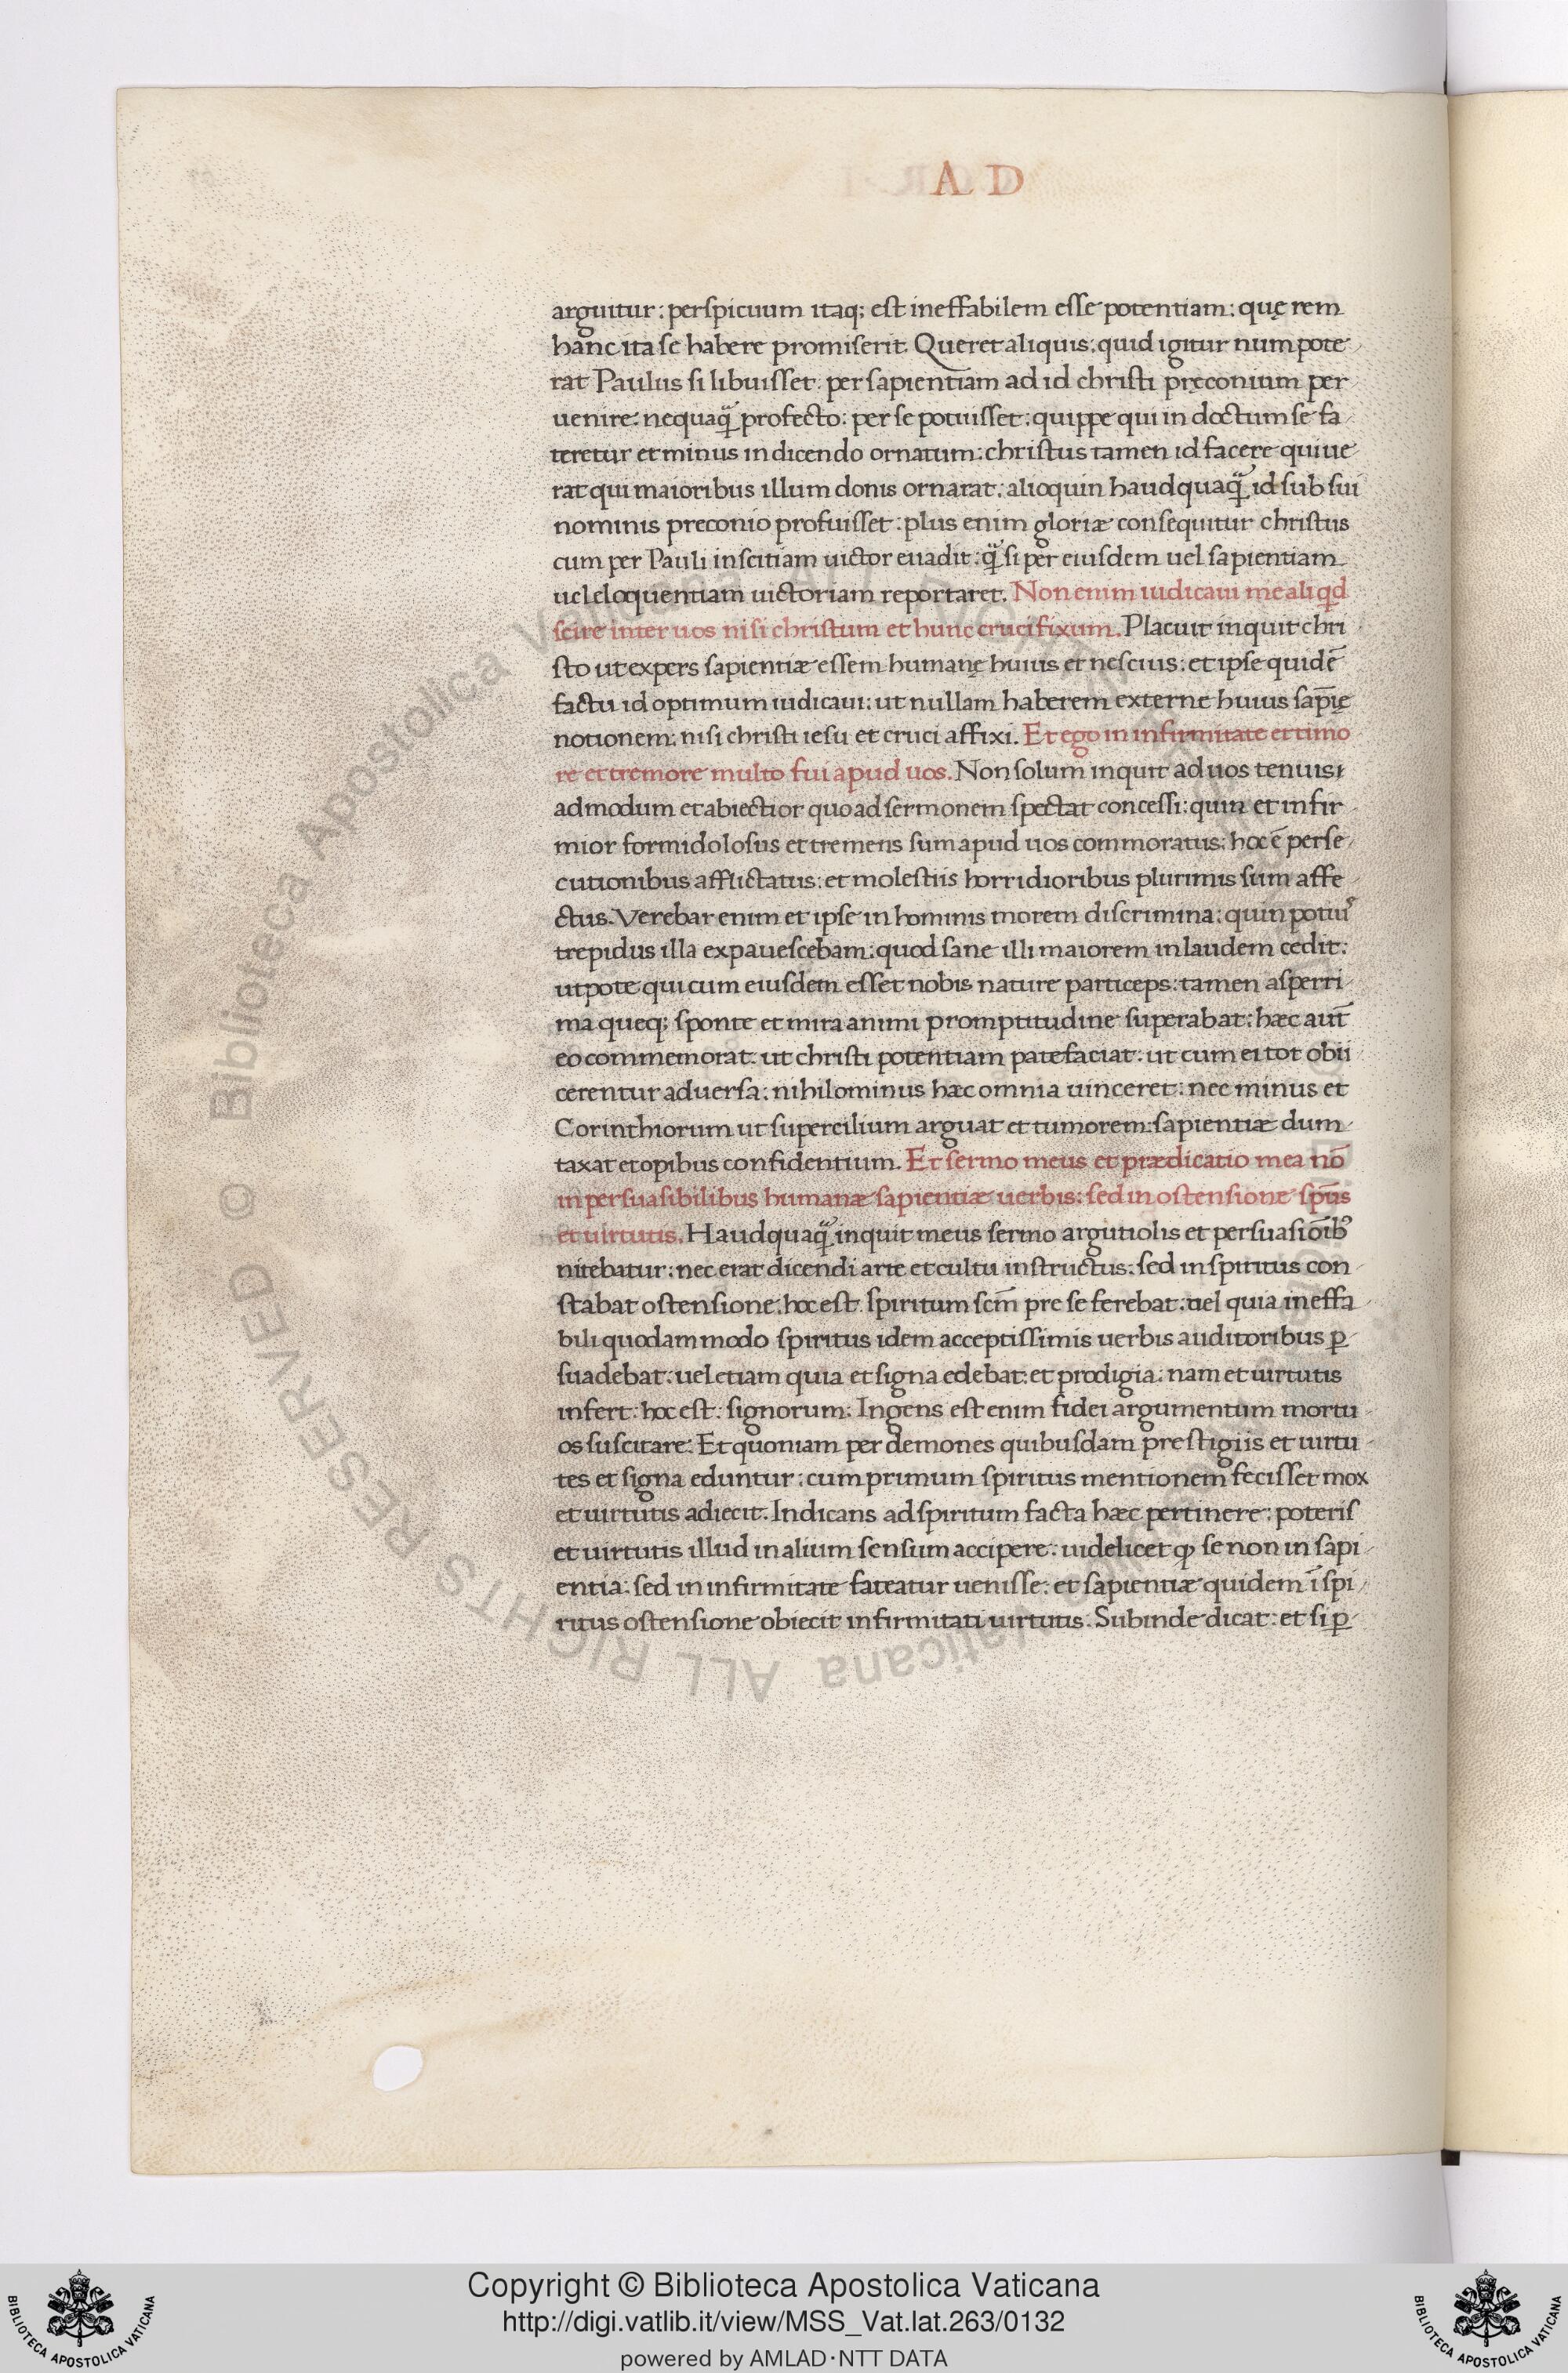 A D
arguitur: perspicuum itaq; est ineffabilem esse potentiam: quę rem
hanc ita se habere promiserit. Queret aliquis: quid igitur num pote
rat Paulus si libuisset: per sapientiam ad id christi pręconium per
uenire: nequaq̃ profecto: per se potuisset: quippe qui in doctum se fa
teretur et minus in dicendo ornatum: christus tamen id facere quiue
rat qui maioribus illum donis ornarat: alioquin haudquaq̃ id sub sui
nominis preconio profuisset: plus enim gloriæ consequitur christus
cum per Pauli inscitiam uictor euadit: q̃ si per eiusdem uel sapientiam
uel eloquentiam uictoriam reportaret. Non enim iudicaui me aliqd
scire inter uos nisi christum et hunc crucifixum. Placuit inquit chri
sto ut expers sapientiæ essem humanę huius et nescius: et ipse quidē
factu id optimum iudicaui: ut nullam haberem externe huius sap̄ię
notionem: nisi christi iesu et cruci affixi. Et ego in infirmitate et timo
re et tremore multo fui apud uos. Non solum inquit ad uos tenuis
admodum et abiectior quo ad sermonem spectat concessi: quin et infir
mior formidolosus et tremens sum apud uos commoratus: hoc ē perse
cutionibus afflictatus: et molestiis horridioribus plurimis sum affe
ctus. Verebar enim et ipse in hominis morem discrimina: quin potiuꝰ
trepidus illa expauescebam: quod sane illi maiorem in laudem cedit:
utpote qui cum eiusdem esset nobis nature particeps: tamen asperri
ma queq; sponte et mira animi promptitudine superabat: hæc aut̄
eo commemorat: ut christi potentiam patefaciat: ut cum ei tot obii
cerentur aduersa: nihilominus hæc omnia uinceret: nec minus et
Corinthiorum ut supercilium arguat et tumorem: sapientiæ dum
taxat et opibus confidentium. Et sermo meus et prædicatio mea nō
in persuasibilibus humanæ sapientiæ uerbis: sed in ostensione sp̄us
et uirtutis. Haudquaq̃ inquit meus sermo argutiolis et persuasiōibꝰ
nitebatur: nec erat dicendi arte et cultu instructus: sed in spiritus con
stabat ostensione: hoc est spiritum scm̄ pre se ferebat: uel quia ineffa
bili quodammodo spiritus idem acceptissimis uerbis auditoribus ꝑ
suadebat: uel etiam quia et signa edebat: et prodigia: nam et uirtutis
infert: hoc est: signorum: Ingens est enim fidei argumentum mortu
os suscitare: Et quoniam per demones quibusdam prestigiis et uirtu
tes et signa eduntur: cum primum spiritus mentionem fecisset mox
et uirtutis adiecit. Indicans ad spiritum facta hæc pertinere: poteris
et uirtutis illud in alium sensum accipere: uidelicet ꝙ se non in sapi
entia: sed in infirmitate fateatur uenisse: et sapientiæ quidem ī spi
ritus ostensione obiecit infirmitati uirtutis. Subinde dicat: et si ꝑ
© Biblioteca Apostolica Vaticana ALL RIGHTS RESERVED
Copyright © Biblioteca Apostolica Vaticana
http://digi.vatlib.it/view/MSS_Vat.lat.263/0132
powered by AMLAD·NTT DATA
BIBLIOTECA APOSTOLICA VATICANA
BIBLIOTECA APOSTOLICA VATICANA